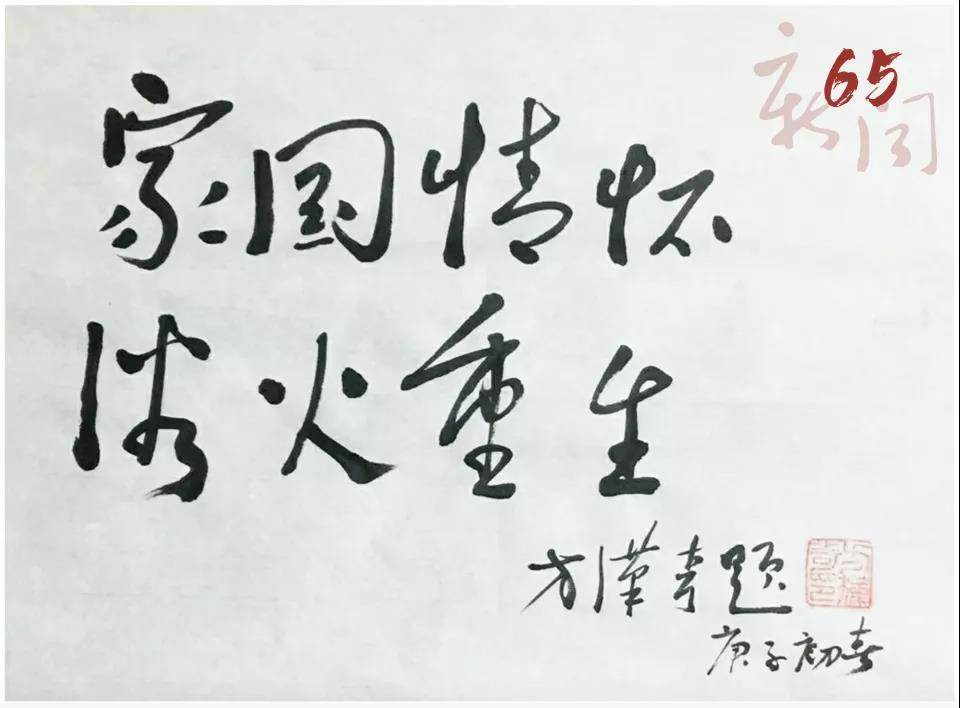 新闻65
家国情怀
浴火重生
方漢奇题
庚子初春